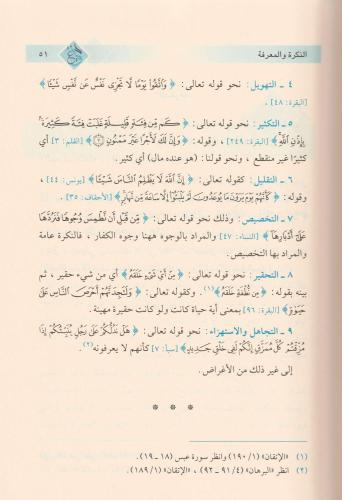 النكرة والمعرفة
٥١
٤ ـ التهويل: نحو قوله تعالى: ﴿وَاتَّقُوا يَوْمًا لَّا تَجْزِى نَفْسٌ عَن نَّفْسٍ شَيْئًا﴾
[البقرة: ٤٨].
٥ ـ التكثير: نحو قوله تعالى: ﴿كَم مِّن فِئَةٍ قَلِيلَةٍ غَلَبَتْ فِئَةً كَثِيرَةً
بِإِذْنِ اللَّهِ﴾ [البقرة: ٢٤٩]، وقوله: ﴿وَإِنَّ لَكَ لَأَجْرًا غَيْرَ مَمْنُونٍ﴾ [القلم: ٣] أي
كثيرًا غير منقطع، ونحو قولنا: (هو عنده مال) أي كثير.
٦ ـ التقليل: كقوله تعالى: ﴿إِنَّ اللَّهَ لَا يَظْلِمُ النَّاسَ شَيْئًا﴾ [يونس: ٤٤]،
وقوله: ﴿كَأَنَّهُمْ يَوْمَ يَرَوْنَ مَا يُوعَدُونَ لَمْ يَلْبَثُوا إِلَّا سَاعَةً مِّن نَّهَارٍ﴾ [الأحقاف: ٣٥].
٧ ـ التخصيص: وذلك نحو قوله تعالى: ﴿مِّن قَبْلِ أَن نَّطْمِسَ وُجُوهًا فَنَرُدَّهَا
عَلَىٰ أَدْبَارِهَا﴾ [النساء: ٤٧] والمراد بالوجوه ههنا وجوه الكفار، فالنكرة عامة
والمراد بها التخصيص.
٨ ـ التحقير: نحو قوله تعالى: ﴿مِنْ أَيِّ شَيْءٍ خَلَقَهُ﴾ أي من شيء حقير، ثم
بينه بقوله: ﴿مِن نُّطْفَةٍ خَلَقَهُ﴾(١). وكقوله تعالى: ﴿وَلَتَجِدَنَّهُمْ أَحْرَصَ النَّاسِ عَلَىٰ
حَيَوٰةٍ﴾ [البقرة: ٩٦] بمعنى أية حياة كانت ولو كانت حقيرة مهينة.
٩ ـ التجاهل والاستهزاء: نحو قوله تعالى: ﴿هَلْ نَدُلُّكُمْ عَلَىٰ رَجُلٍ يُنَبِّئُكُمْ إِذَا
مُزِّقْتُمْ كُلَّ مُمَزَّقٍ إِنَّكُمْ لَفِى خَلْقٍ جَدِيدٍ﴾ [سبأ: ٧] كأنهم لا يعرفونه(٢).
إلى غير ذلك من الأغراض.
* * *
(١) «الإتقان» (١/١٩٠) وانظر سورة عبس (١٨ ـ ١٩).
(٢) انظر «البرهان» (٤/٩١ ـ ٩٢)، «الإتقان» (١/١٨٩).